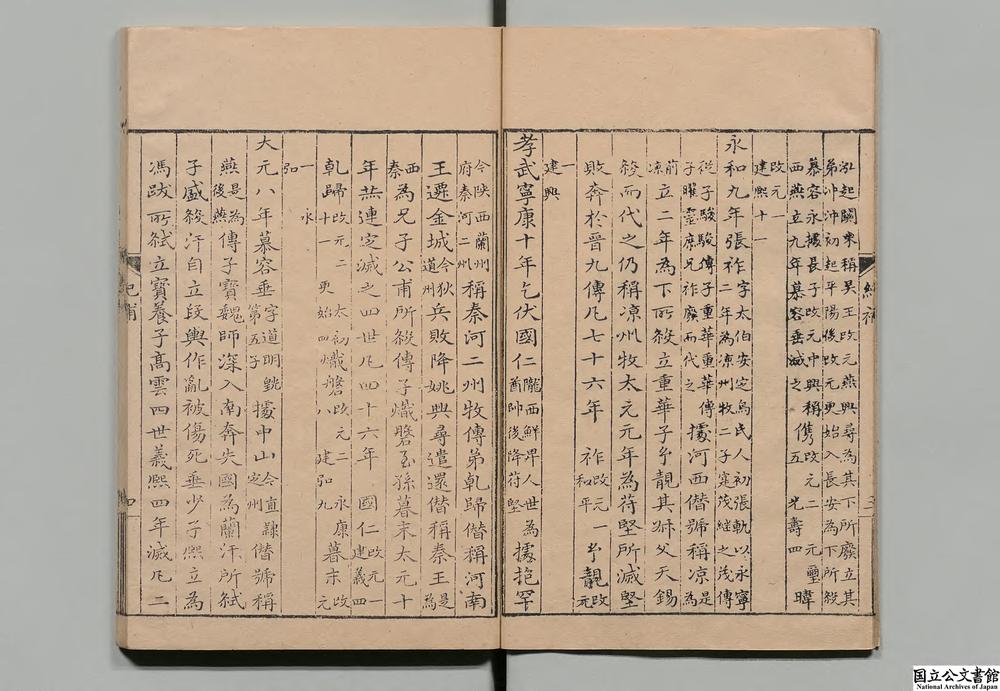 泓起關東稱吳王改元燕興尋為其下所廢立其
弟沖沖初起平陽後改元更始入長安為下所殺
慕容永據長子改元中興稱
西燕立九年慕容垂滅之
儁改元二 元璽 光壽四 暐
改元一
建熙十一
永和九年張祚字太伯安定烏民人初張軌以永寧
二年為凉州牧二子寔茂継之茂傳
從子駿駿傳子重華重華傳
子曜霊庶兄祚廢而代之
據河西僭號稱凉是為
前凉
立二年為下所殺立重華子玄靚其叔父天錫
殺而代之仍稱凉州牧太元元年為苻堅所滅堅
敗奔於晉九傳凡七十六年 祚改元一和平 玄靚改元
一
建興
孝武寧康十年乞伏國仁隴西鮮卑人世為
酋帥後降苻堅
據抱罕
今陝西蘭州
府秦河二州
稱秦河二州牧傳弟乾歸僭稱河南
王遷金城今狄道州兵敗降姚興尋遣還僭稱秦王是為
西秦為兄子公甫所殺傳子熾磐至孫暮末太元十
年燕連定滅之四世凡四十六年 國仁改元一建義四
乾歸改元二 太初十一 更始四熾磐改元二 永康八 建弘九暮末改元
一 永
弘
大元八年慕容垂字道明皝
第五子據中山今直隸
定州僭號稱
燕是為
後燕傳子寶魏師深入南奔失國為蘭汗所弑
子盛殺汗自立段輿作亂被傷死垂少子熙立為
馮跋所弑立寶養子高雲四世義熙四年滅凡二
紀補
四